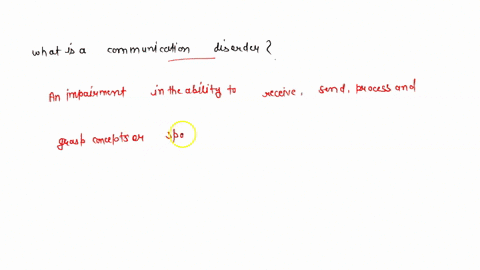 what is a communication disorder?
An impairment in the ability to receive, send, process and
grasp concepts or spo